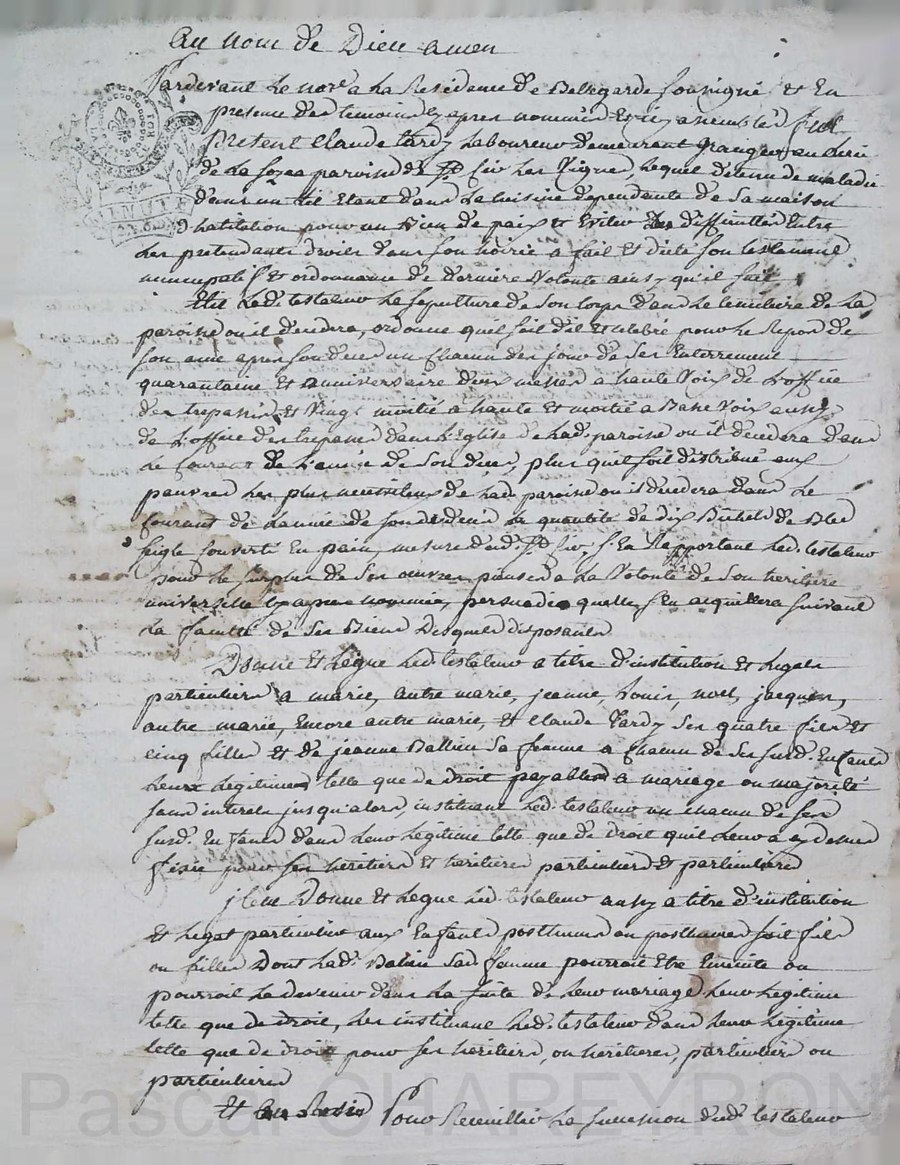 Au nom de Dieu amen
Pardevant le nore a la Residence de Bellegarde soussigné et En
presence des temoins cy apres nommés Et icy assemblés fut
Present Claude tardy laboureur demeurant granger au
de la paroisse de St Cir les Vignes, lequel detenu de maladie
dans un lit Etant dans la cuisine dependante de sa maison
d'habitation pour un bien de paix et Eviter les difficultés Entre
les pretendants droits dans son hoirie a fait et dicté son testament
nuncupatif et ordonnance de derniere Volonté ainsy qu'il suit
Elit led. testateur la sepulture de son Corps dans le cimetiere de la
paroisse ou il decedera, ordonne qu'il soit dit et celebré pour le Repos de
son ame apres son deces un chacun des jours de ses Enterrement
quarantaine Et anniversaire deux messes a haute Voix de l'office
des trepassés Et Vingt moitié a haute Et moitié a Basse Voix aussy
de l'office des trepassés dans l'Eglise de lad. paroisse ou il decedera dans
le Courant de l'année de son deces, plus qu'il soit distribué aux
pauvres les plus necessiteux de lad. paroisse ou il decedera dans le
Courant de l'année de sond. deces la quantité de dix Bichets de Bled
seigle Converti En pain, mesure dud. St Cir, s'En Rapportant led. testateur
pour le surplus de ses œuvres pieuses a la Volonté de son heritiere
universelle cy apres nommée, persuadé quelle s'En acquittera suivant
la faculté de ses Biens Desquels disposant
Donne Et legue led. testateur a titre d'institution et legats
particuliers a marie, autre marie, jeanne, Louis, noel, jacques,
autre marie, Encore autre marie, Et Claude Tardy ses quatre fils Et
cinq filles Et de jeanne Ballieu sa femme a chacun de ses susd. Enfants
leurs legitimes telle que de droit payables a mariage ou majorité
sans interet jusqu'alors, instituant led. testateur un chacun de ses
susd. Enfants dans leur legitime telle que de droit qu'il leur a cy dessus
fixée pour ses heritiers Et heritieres particuliers et particulieres
jtem Donne Et legue led. testateur aussy a titre d'institution
Et legat particulier aux Enfants posthumes ou posthumes soit fils
ou filles Dont lad. Balieu sad. femme pourroit Etre Enceinte ou
pourroit le devenir dans la suite de leur mariage leur legitime
telle que de droit, les instituant led. testateur dans leur legitime
telle que de droit pour ses heritiers, ou heritieres, particuliers ou
particulieres
Et Pour Recueillir la succession dud. testateur
Pascal CHAREYRON